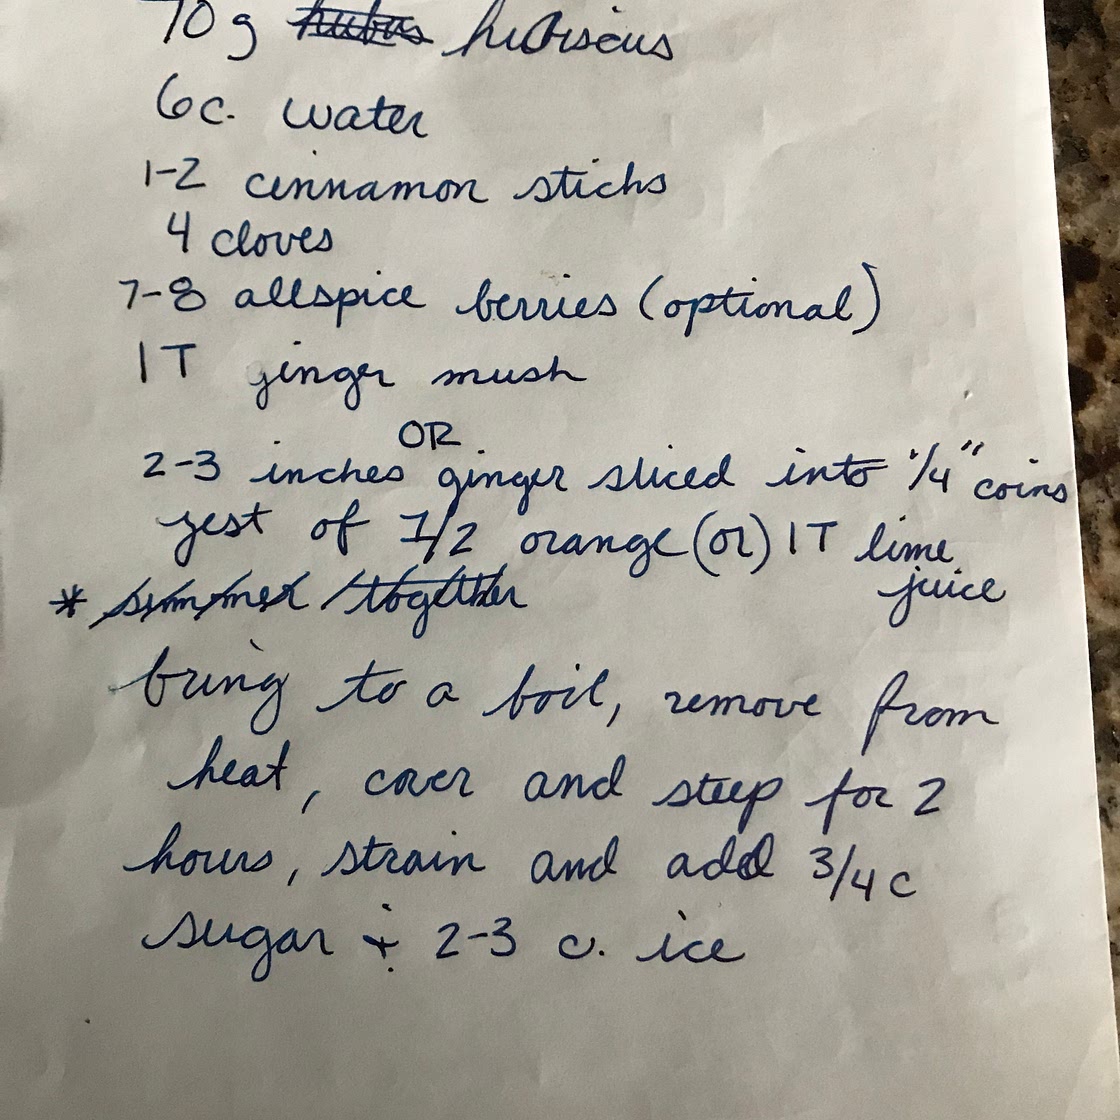 70g hibiscus
6c. water
1-2 cinnamon sticks
4 cloves
7-8 allspice berries (optional)
1T ginger mush
OR
2-3 inches ginger sliced into 1/4" coins
zest of 1/2 orange (or) 1T lime
juice
* simmer together
bring to a boil, remove from
heat, cover and steep for 2
hours, strain and add 3/4 c
sugar + 2-3 c. ice